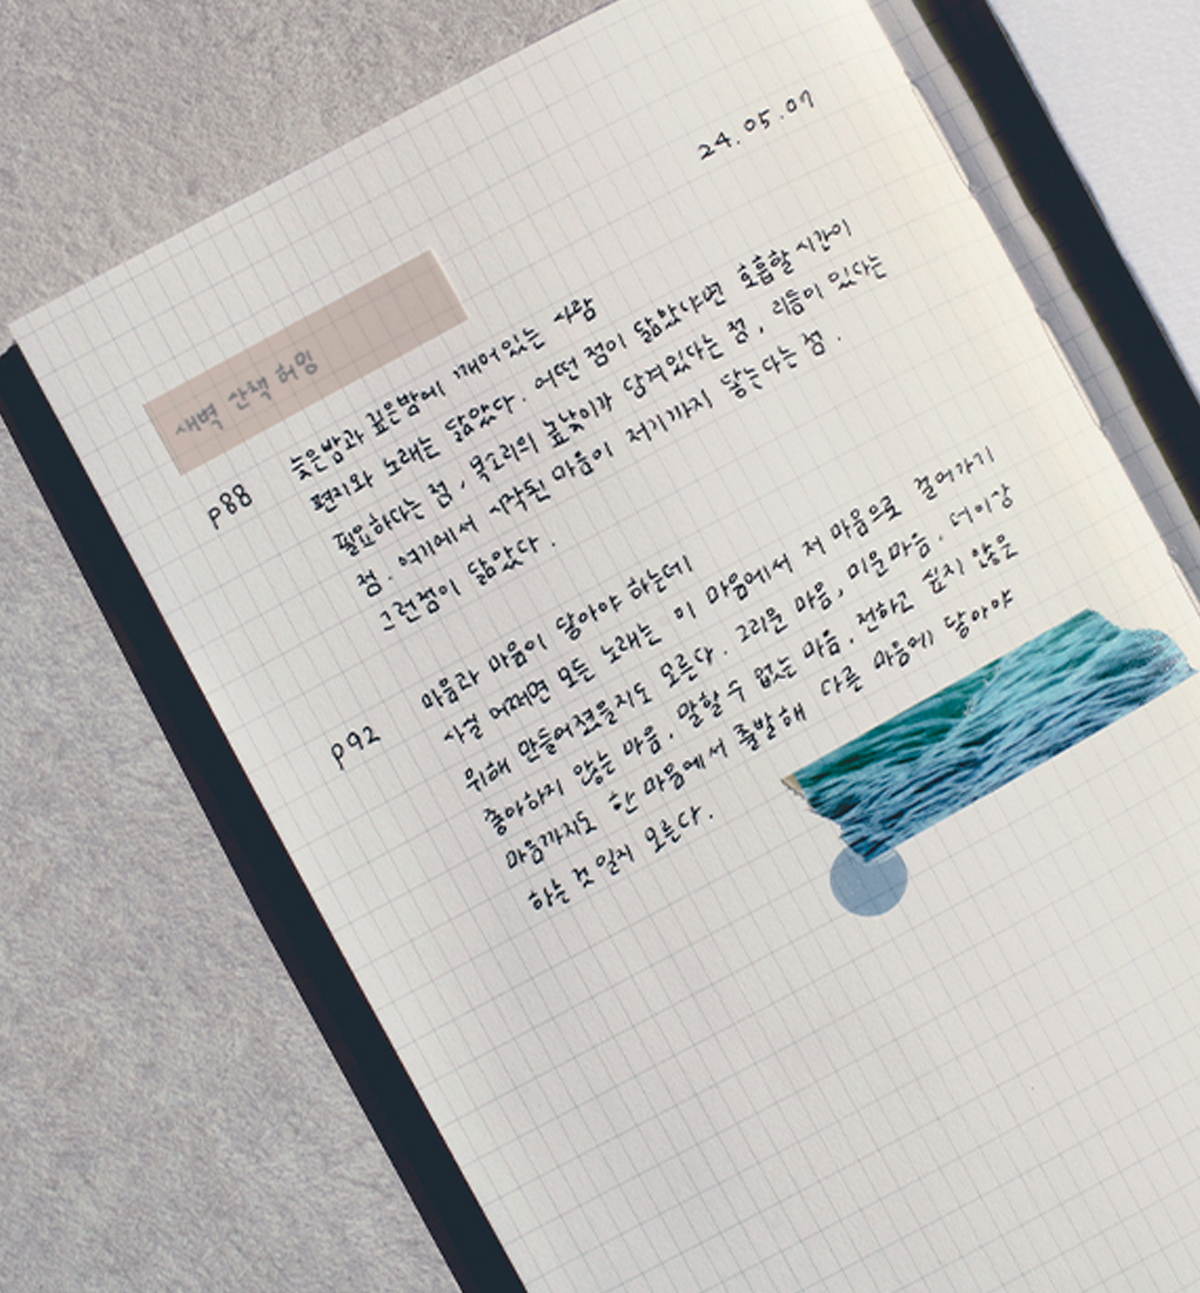 24.05.07
새벽 산책 허밍
p88 늦은밤과 깊은밤에 깨어있는 사람
편지와 노래는 닮았다. 어떤 점이 닮았냐면 호흡할 시간이
필요하다는 점, 목소리의 높낮이가 담겨있다는 점, 리듬이 있다는
점. 여기에서 시작된 마음이 저기까지 닿는다는 점.
그런점이 닮았다.
p92 마음과 마음이 닿아야 하는데
사실 어쩌면 모든 노래는 이 마음에서 저 마음으로 걸어가기
위해 만들어졌을지도 모른다. 그리운 마음, 미운마음. 더이상
좋아하지 않는 마음. 말할 수 없는 마음. 전하고 싶지 않은
마음까지도 한 마음에서 출발해 다른 마음에 닿아야
하는 것 일지 모른다.